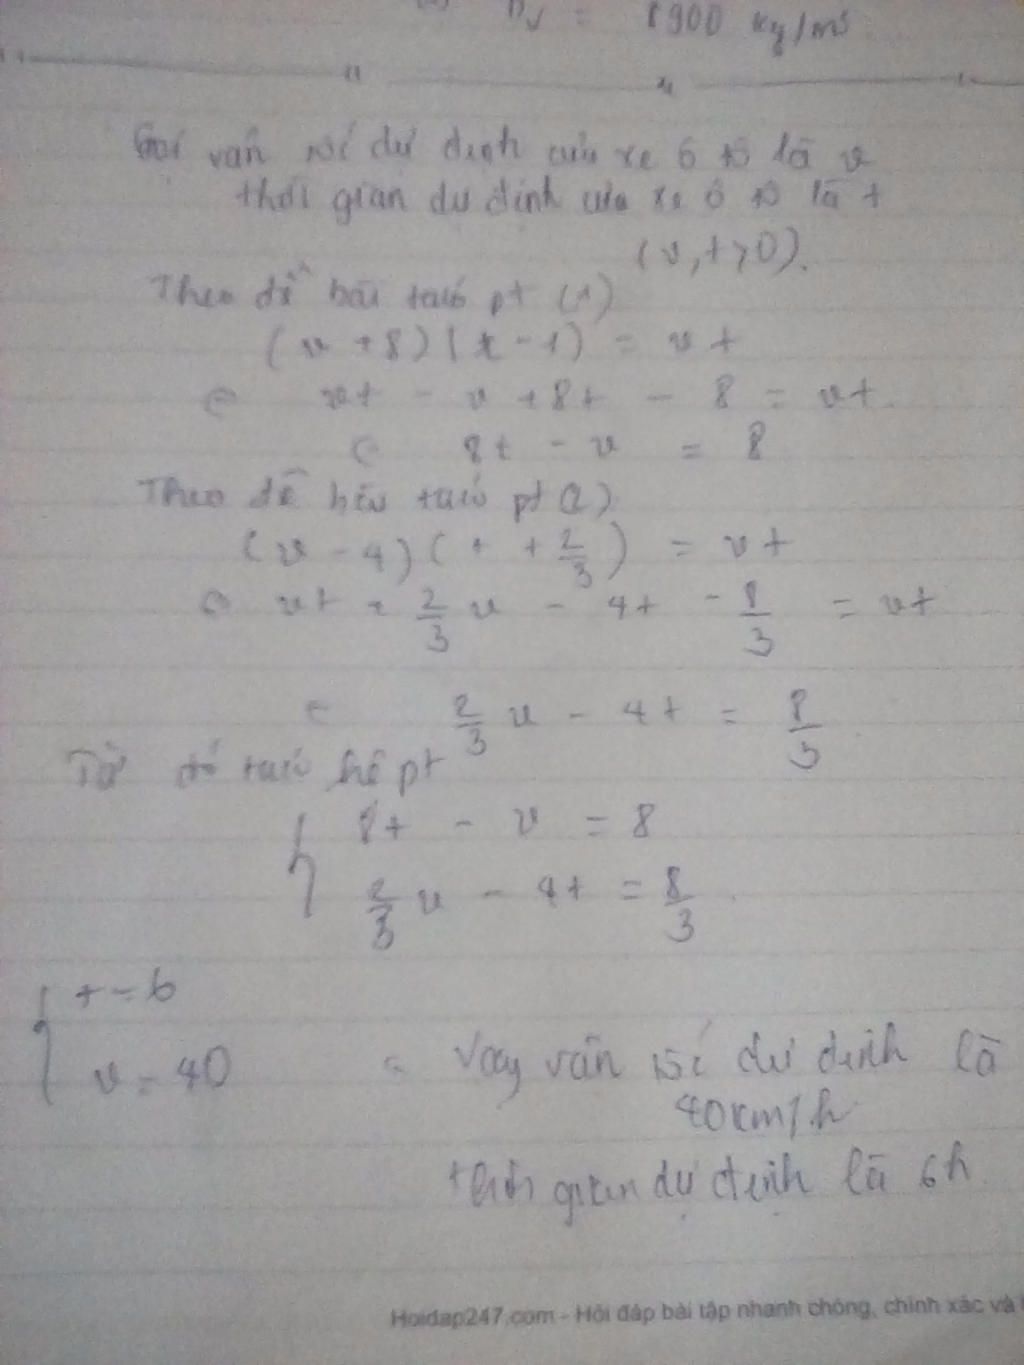 Dv = 8900 kg/m³
Gọi vận tốc dự định của xe ô tô là v
thời gian dự định của xe ô tô là t
(v, t > 0).
Theo đề bài ta có pt (1)
(v + 8) (t - 1) = vt
⇔ vt - v + 8t - 8 = vt
⇔ 8t - v = 8
Theo đề bài ta có pt (2)
(v - 4) (t + 2/3) = vt
⇔ vt + 2/3 v - 4t - 8/3 = vt
⇔ 2/3 v - 4t = 8/3
Từ đó ta có hệ pt
{ 8t - v = 8
2/3 v - 4t = 8/3
{ t = 6
v = 40 Vậy vận tốc dự định là
40km/h
thời gian dự định là 6h
Hoidap247.com - Hỏi đáp bài tập nhanh chóng, chính xác và